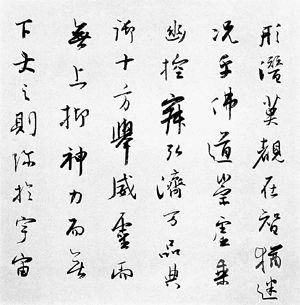 形潛莫覩在智猶迷
況乎佛道崇虛乘
幽控寂弘濟万品典
御十方舉威靈而
無上抑神力而無
下大之則弥於宇宙